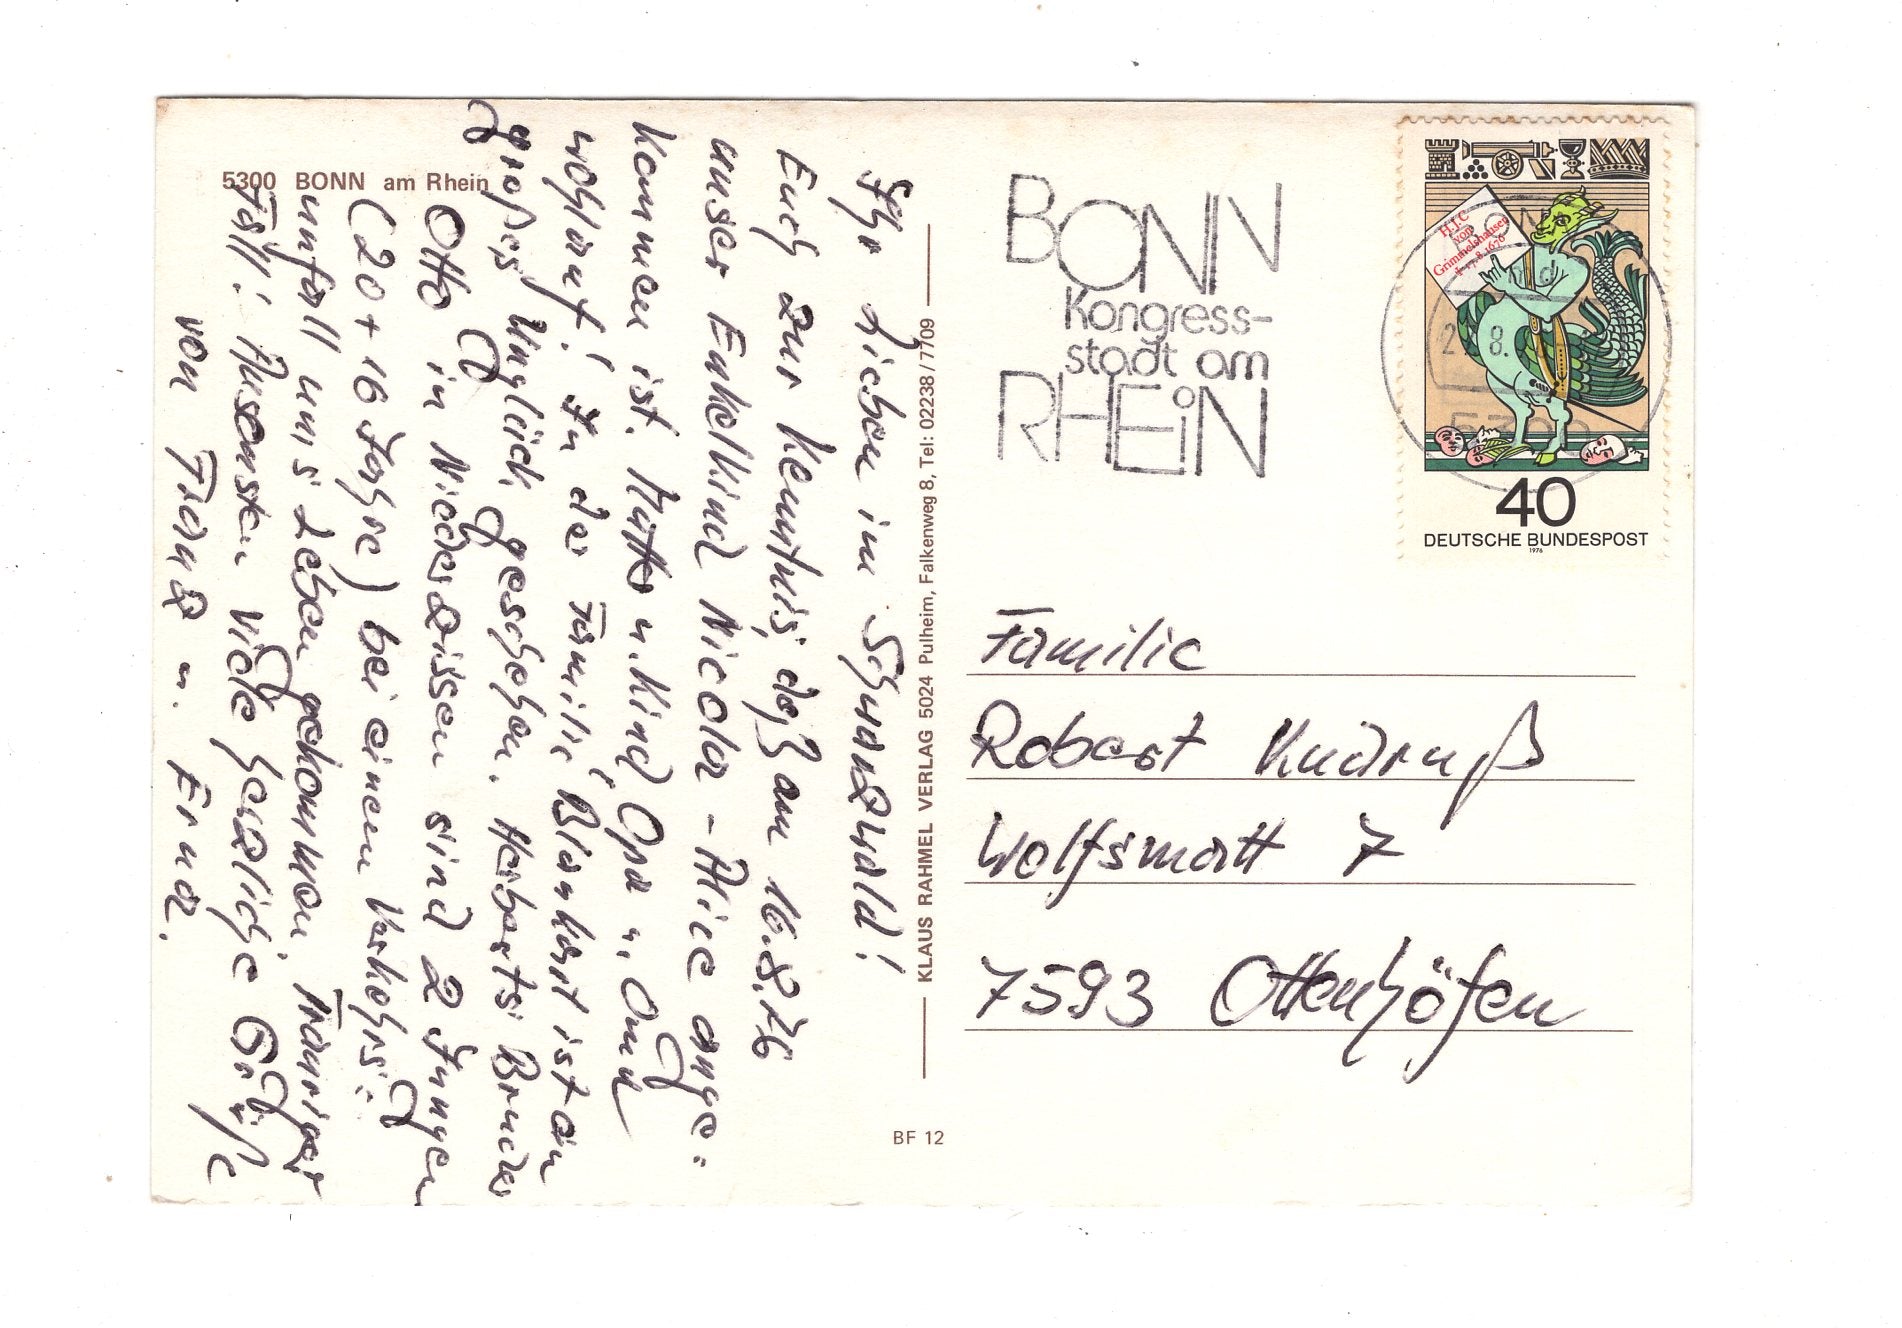 5300 BONN am Rhein
Ihr Lieben im Schwarzwald!
Euch zur Kenntnis, daß am 16.8.76
unser Enkelkind Nicola - Alice ange-
kommen ist. Mutter u. Kind, Opa u. Oma
wohlauf! In der Familie Blankart ist ein
großes Unglück geschehen. Herberts Bruder
Otto in Niederzissen sind 2 Jungen
(20 + 16 Jahre) bei einem Verkehrs-
unfall ums Leben gekommen. Trauriger
Fall! Ansonsten viele herzliche Grüße
von Franz u. Erna.
KLAUS RAHMEL VERLAG 5024 Pulheim, Falkenweg 8, Tel: 02238/7709
BF 12
BONN
Kongress-
stadt am
RHEiN
H.J.C
von
Grimmelshausen
† 17.8.1676
2 8.
5300
40
DEUTSCHE BUNDESPOST
1976
Familie
Robert Kudruß
Wolfsmatt 7
7593 Ottenhöfen